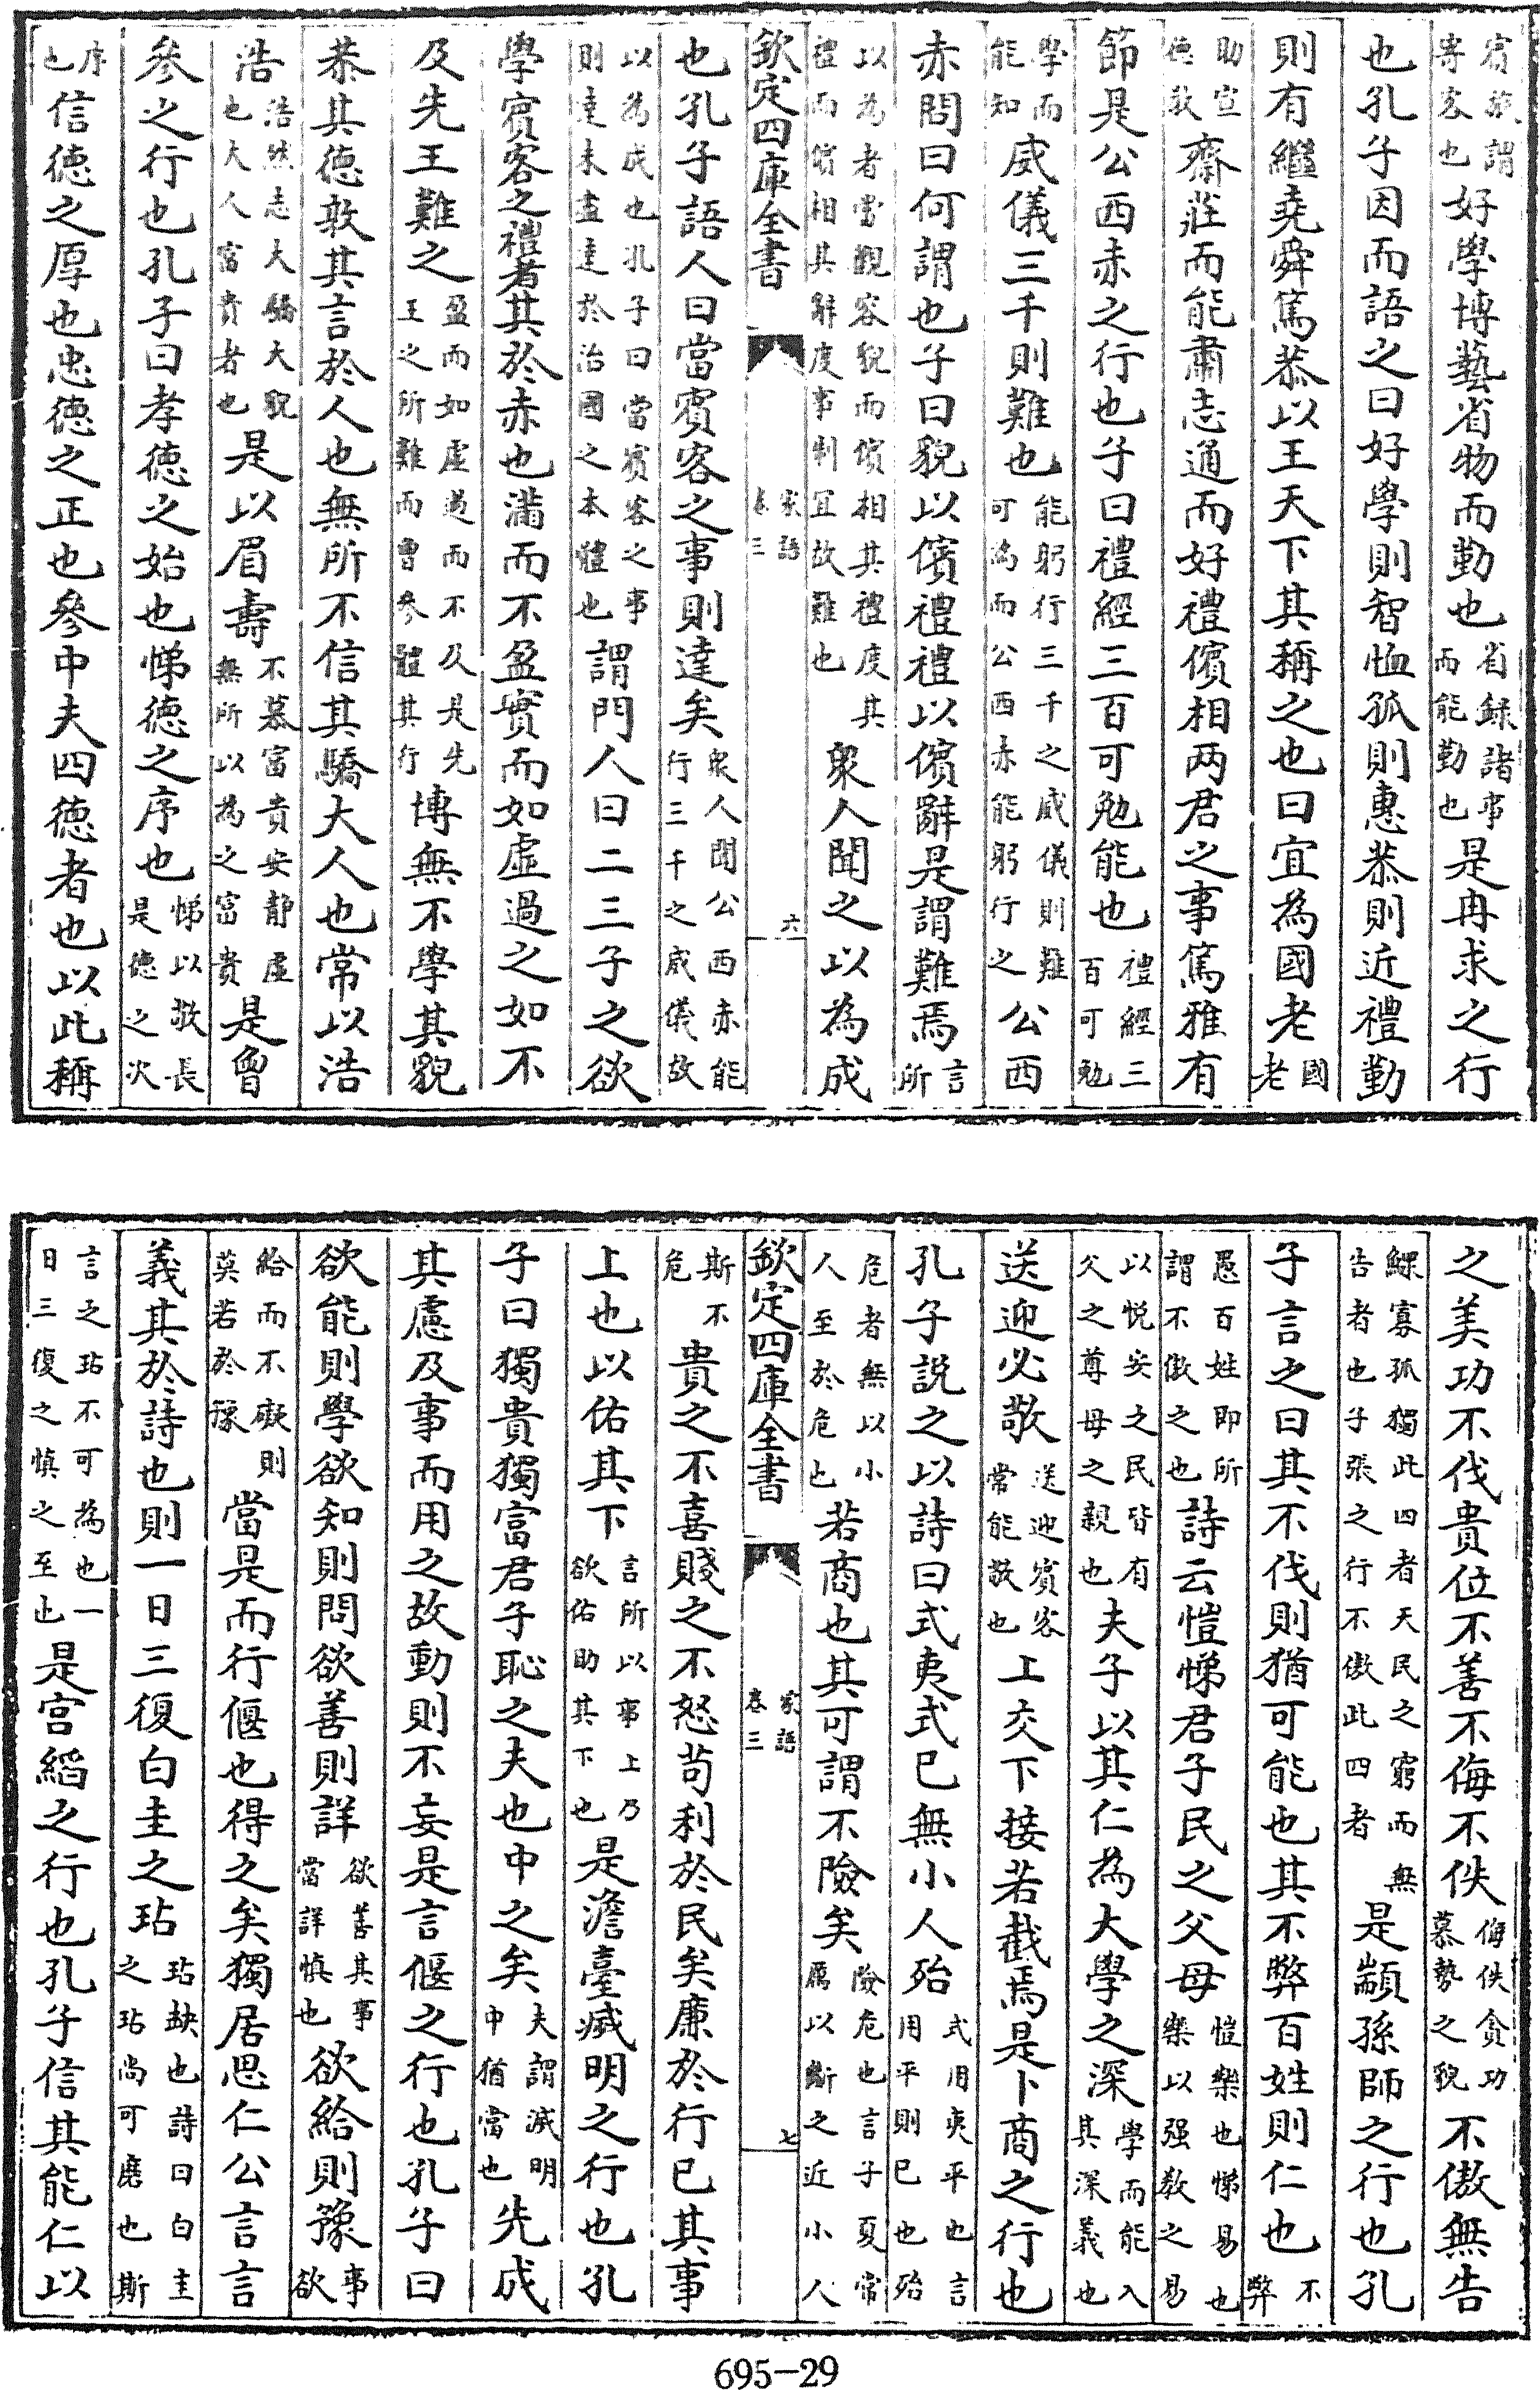 賔旅謂寄客也好學博藝省物而勤也省録諸事而能勤也是冉求之行
也孔子因而語之曰好學則智恤孤則惠恭則近禮勤
則有繼堯舜篤恭以王天下其稱之也曰宜為國老國老
助宣徳教齋莊而能肅志通而好禮儐相两君之事篤雅有
節是公西赤之行也子曰禮經三百可勉能也禮經三百可勉
學而能知威儀三千則難也能躬行三千之威儀則難可為而公西赤能躬行之公西
赤問曰何謂也子曰貌以儐禮禮以儐辭是謂難焉言所
以為者當觀容貌而儐相其禮度其禮而儐相其辭度事制宜故難也衆人聞之以為成
欽定四庫全書 家語卷三 六
也孔子語人曰當賔客之事則達矣衆人聞公西赤能行三千之威儀故
以為成也孔子曰當賔客之事則達未盡達於治國之本體也謂門人曰二三子之欲
學賔客之禮者其於赤也滿而不盈實而如虛過之如不
及先王難之盈而如虛過而不及是先王之所難而曾參體其行博無不學其貌
恭其徳敦其言於人也無所不信其驕大人也常以浩
浩浩然志大驕大貌也大人富貴者也是以眉壽不慕富貴安静虛無所以為之富貴是曾
參之行也孔子曰孝徳之始也悌徳之序也悌以敬長是徳之次
序也信徳之厚也忠徳之正也參中夫四徳者也以此稱
之美功不伐貴位不善不侮不佚侮佚貪功慕勢之貌不傲無告
鰥寡孤獨此四者天民之窮而無告者也子張之行不傲此四者是顓孫師之行也孔
子言之曰其不伐則猶可能也其不弊百姓則仁也不弊
愚百姓即所謂不傲之也詩云愷悌君子民之父母愷樂也悌易也樂以强教之易
以悦安之民皆有父之尊母之親也夫子以其仁為大學之深學而能入其深義也
送迎必敬送迎賔客常能敬也上交下接若截焉是卜商之行也
孔子説之以詩曰式夷式已無小人殆式用夷平也言用平則已也殆
危者無以小人至於危也若商也其可謂不險矣險危也言子夏常厲以斷之近小人
欽定四庫全書 家語卷三 七
斯不危貴之不喜賤之不怒苟利於民矣廉於行已其事
上也以佑其下言所以事上乃欲佑助其下也是澹臺㓕明之行也孔
子曰獨貴獨富君子恥之夫也中之矣夫謂滅明中猶當也先成
其慮及事而用之故動則不妄是言偃之行也孔子曰
欲能則學欲知則問欲善則詳欲善其事當詳慎也欲給則豫事欲
給而不礙則莫若於豫當是而行偃也得之矣獨居思仁公言言
義其於詩也則一日三復白圭之玷玷缺也詩曰白圭之玷尚可磨也斯
言之玷不可為也一日三復之慎之至也是宫縚之行也孔子信其能仁以
695-29